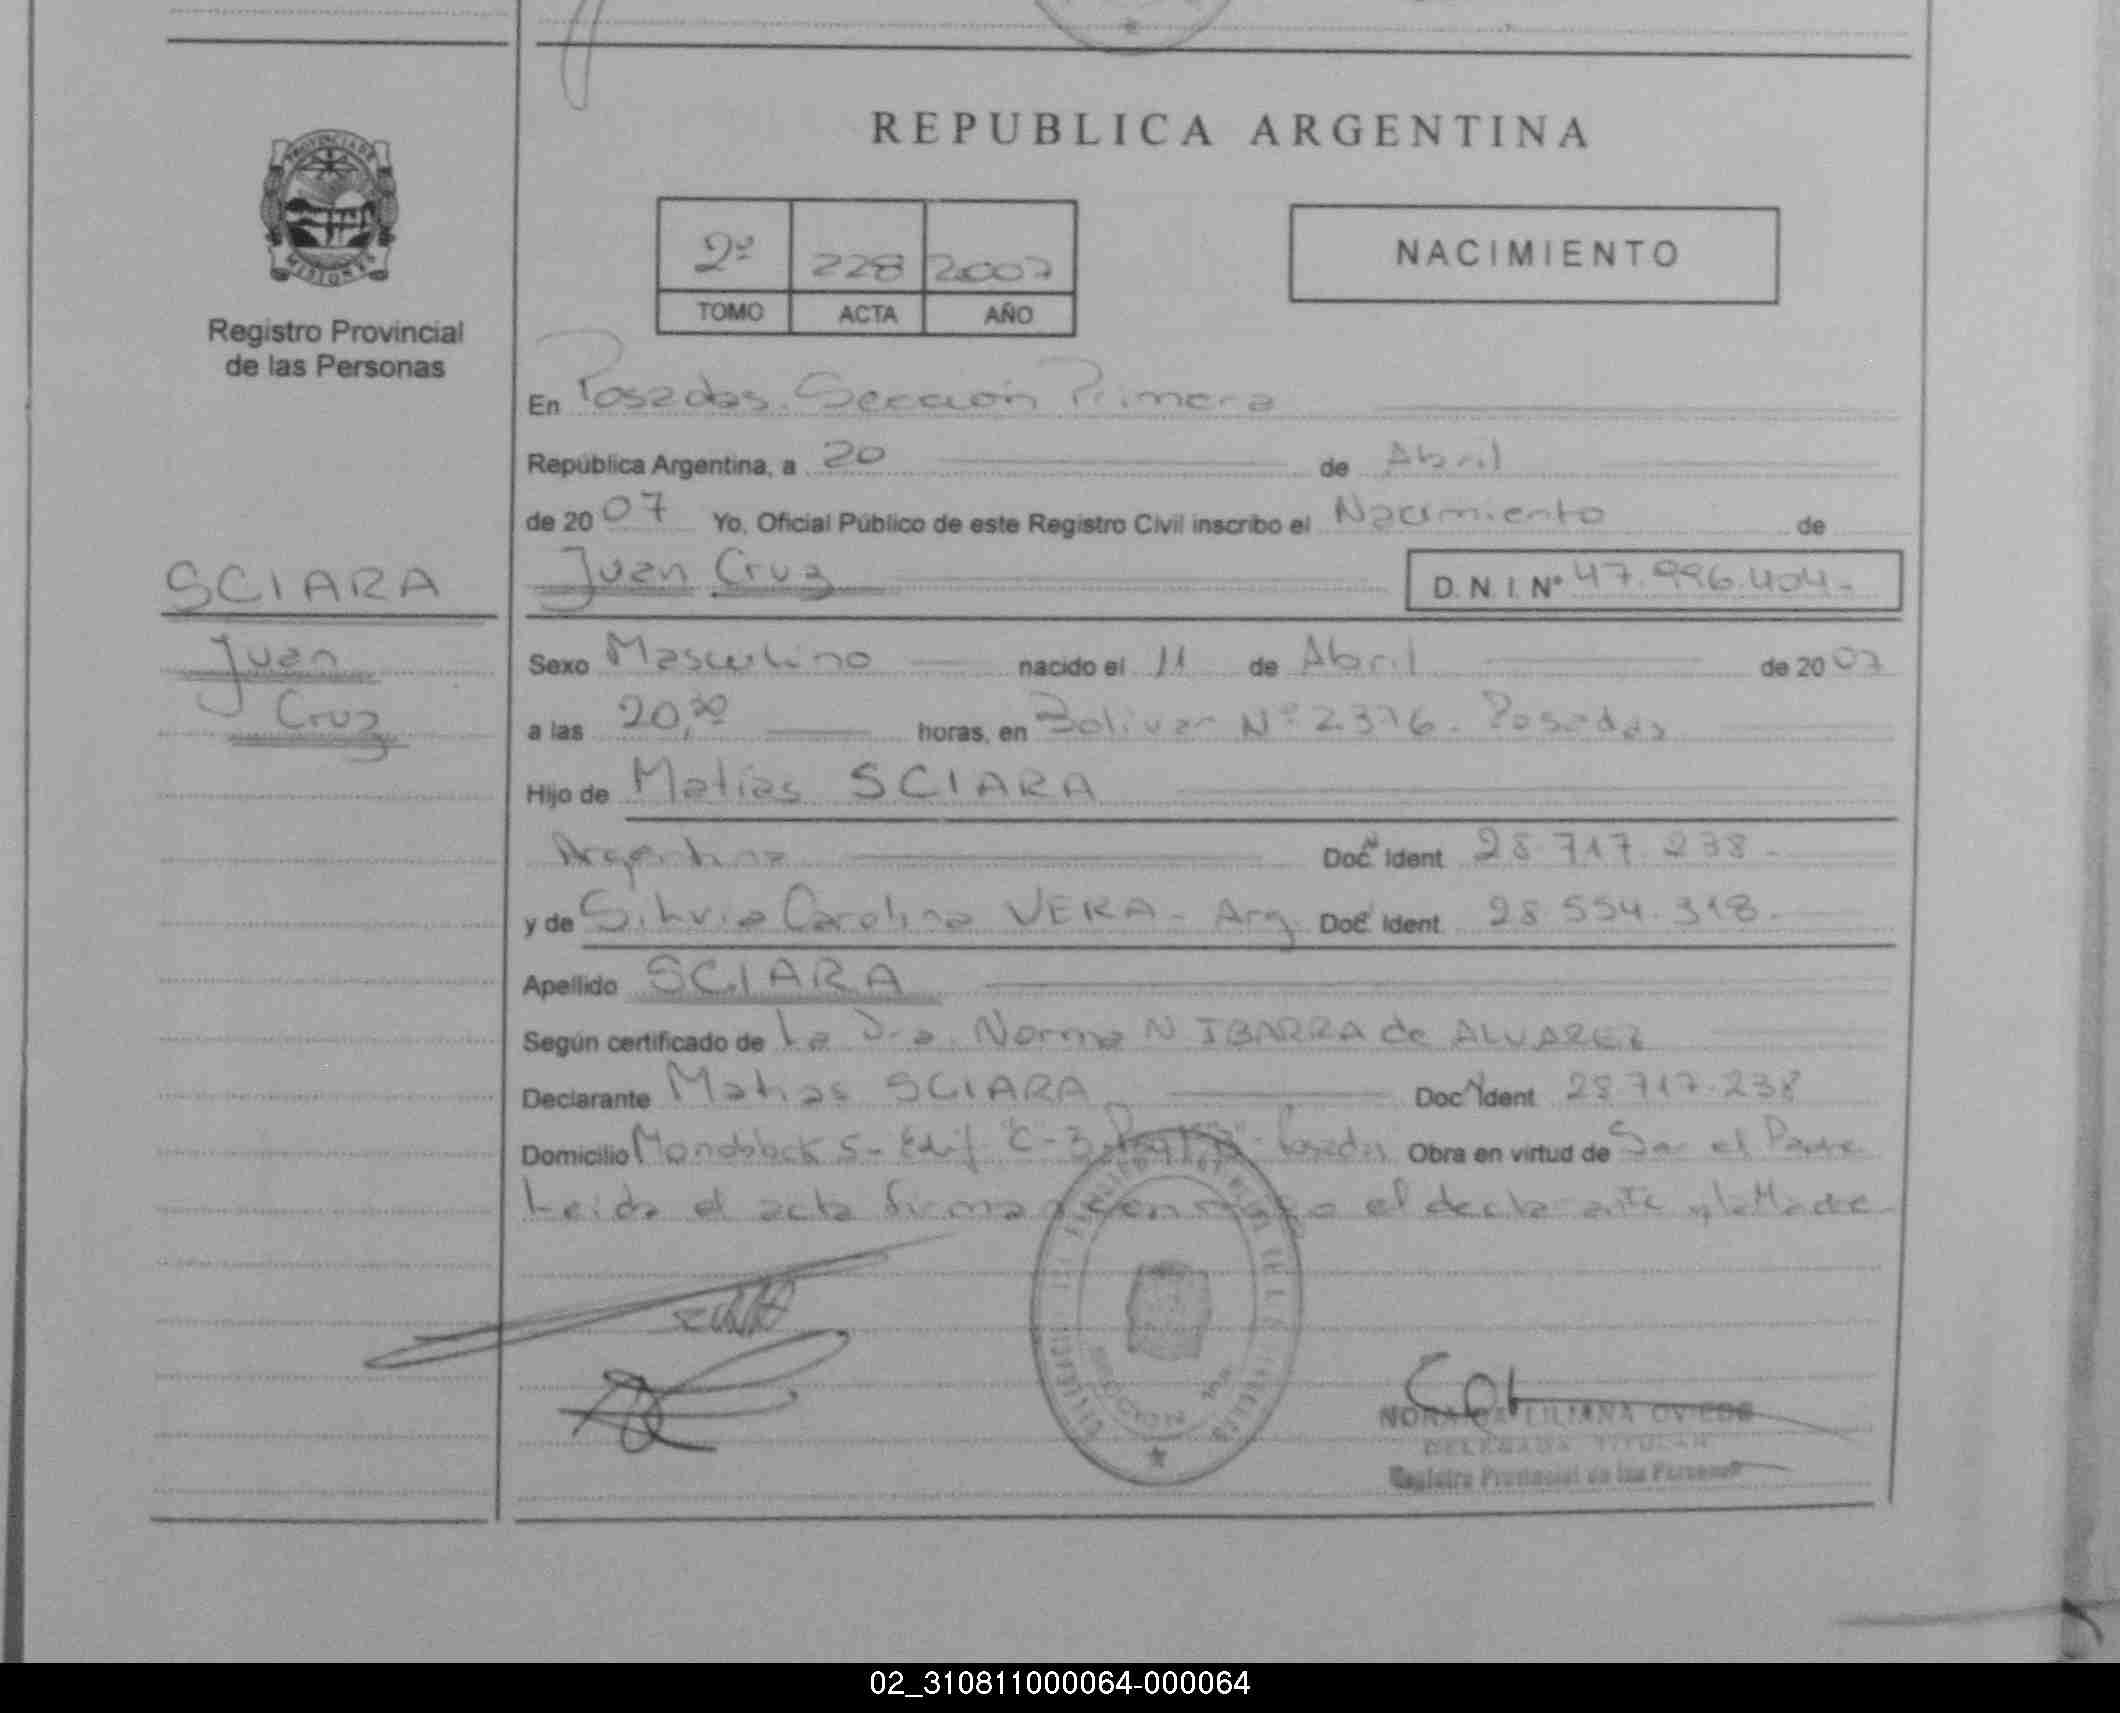 REPUBLICA ARGENTINA
PROVINCIA DE
MISIONES
Registro Provincial
de las Personas
2º 228 2007
TOMO ACTA AÑO
NACIMIENTO
En Posadas. Sección Primera
República Argentina, a 20 de Abril
de 2007 Yo, Oficial Público de este Registro Civil inscribo el Nacimiento de
SCIARA
Juan
Cruz
Juan Cruz D.N.I.Nº 47.996.404.-
Sexo Masculino nacido el 11 de Abril de 2007
a las 20,30 horas, en Bolivar Nº 2376. Posadas
Hijo de Matías SCIARA
Argentina Doc. Ident 28.717.238.-
y de Silvia Carolina VERA - Arg. Doc. Ident. 28.554.318.-
Apellido SCIARA
Según certificado de La Dra. Norma N IBARRA de ALVAREZ
Declarante Matias SCIARA Doc. Ident 28.717.238
Domicilio Monoblock 5- Edif "C"-3 Posadas Obra en virtud de Ser el Padre
Leida el acta firma conmigo el declarante y la Madre
LILIANA OVIEDO
DELEGADA TITULAR
Registro Provincial de las Personas
02_310811000064-000064